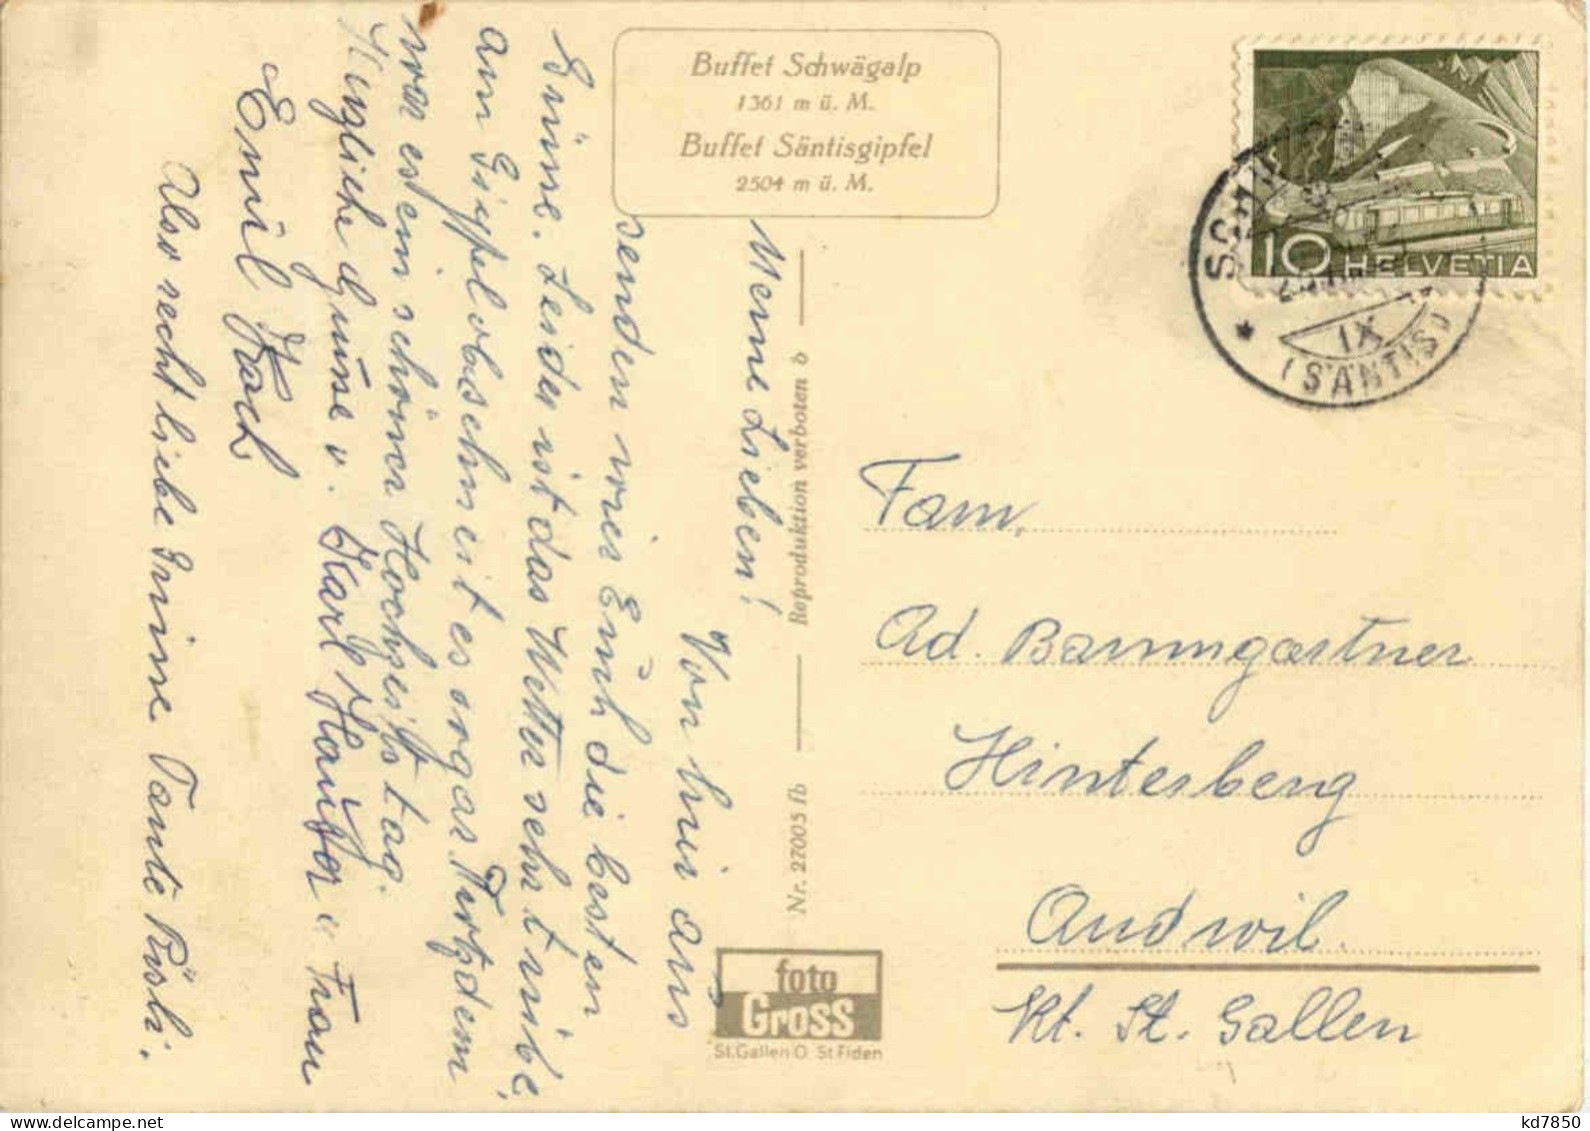 Buffet Schwägalp
1361 m ü. M.
Buffet Säntisgipfel
2504 m ü. M.
10 HELVETIA
IX
(SÄNTIS)
Meine Lieben!
Von hier aus
senden wir Euch die besten
Grüsse. Leider ist das Wetter sehr trübe
am Gipfel obschneit es sogar. Trotzdem
war es ein schöner Hochzeitstag.
Herzliche Grüsse v. Karl Hautor u Frau
Emil Koch
Also recht liebe Grüsse Tante Rösli.
Nr. 27005 fb
Reproduktion verboten
foto
Gross
St.Gallen O St Fiden
Fam.
Ad. Baumgartner
Hinterberg
Andwil.
Kt. St. Gallen
kd7850
delcampe.net